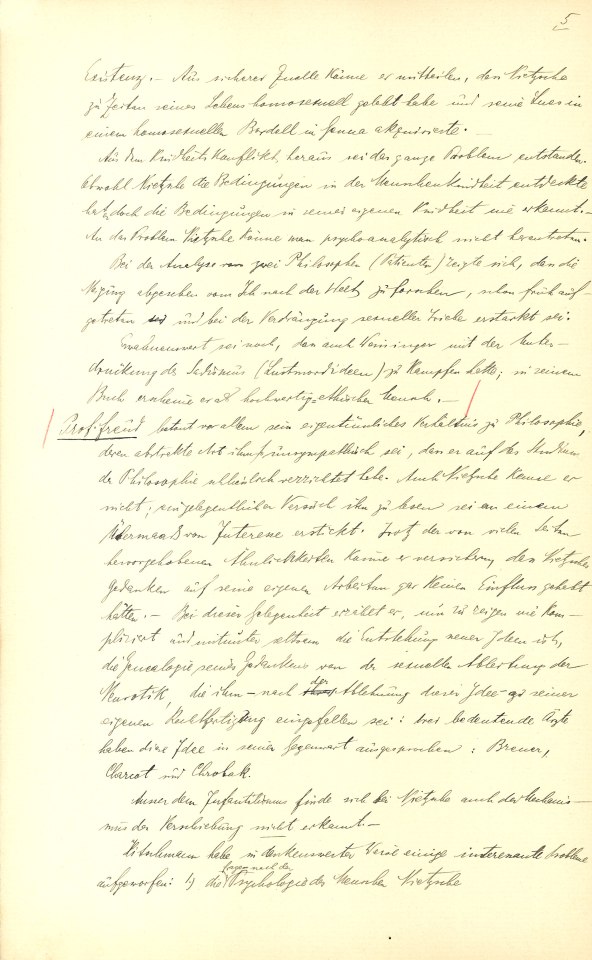 5
Existenz. – Aus sicherer Quelle könne er mitteilen, dass Nietzsche
zu Zeiten seines Lebens homosexuell gelebt habe und seine Lues in
einem homosexuellen Bordell in Genua akquirierte. –
Aus dem Kindheitskonflikt heraus sei das ganze Problem entstanden.
Obwohl Nietzsche die Bedingungen in der Menschenkindheit entdeckte
hat, doch die Bedingungen in seiner eigenen Kindheit nie erkannt. –
An das Problem Nietzsche könne man psychoanalytisch nicht herantreten.
Bei der Analyse von zwei Philosophen (Patienten) zeigte sich, dass die
Neigung abgesehen vom Ich nach der Welt zu forschen, schon früh auf-
getreten und bei der Verdrängung sexueller Triebe erstarkt sei.
Erwähnenswert sei noch, dass auch Weininger mit der Unter-
drückung des Sadismus (Lustmordideen) zu kämpfen hatte; in seinem
Buch erscheine er als hochwertig-ethischer Mensch. –
Prof. Freud betont vor allem sein eigentümliches Verhältnis zu Philosophie,
deren abstrakte Art ihm so unsympathisch sei, dass er auf das Studium
der Philosophie schliesslich verzichtet habe. Auch Nietzsche kenne er
nicht; ein gelegentlicher Versuch ihn zu lesen sei an einem
Übermass von Interesse erstickt. Trotz der von vielen Seiten
hervorgehobenen Ähnlichkeiten könne er versichern, dass Nietzsches
Gedanken auf seine eigenen Arbeiten gar keinen Einfluss gehabt
hätten. – Bei dieser Gelegenheit erzählt er, um zu zeigen wie kom-
pliziert und mitunter seltsam die Entstehung neuer Ideen ist,
die Genealogie seines Gedankens von der sexuellen Ableitung der
Neurotik, die ihm – nach der Ablehnung dieser Idee – zu seiner
eigenen Rechtfertigung eingefallen sei: drei bedeutende Ärzte
haben diese Idee in seiner Gegenwart ausgesprochen: Breuer,
Charcot und Chrobak.
Ausser dem Infantilismus finde sich bei Nietzsche auch der Mechanis-
mus der Verschiebung nicht erkannt. –
Hitschmann habe in dankenswerter Weise einige interessante Probleme
aufgeworfen: 1) die Fragen nach der Psychologie des Menschen Nietzsche